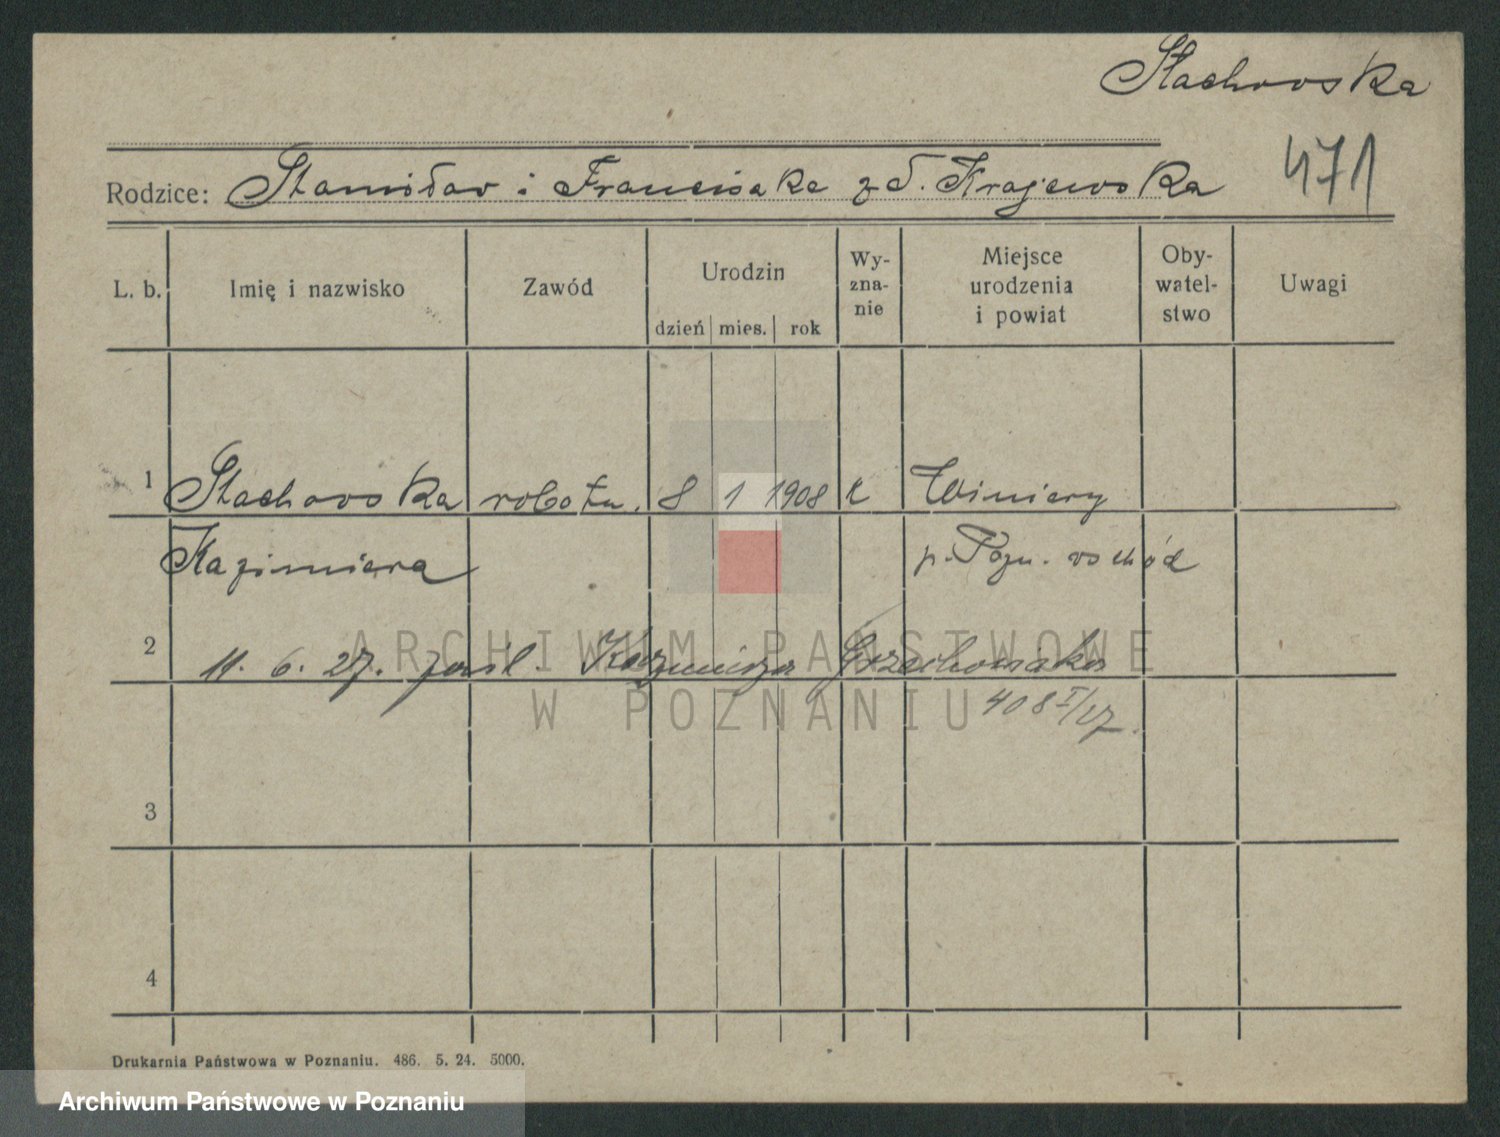 Stachowska
471
Rodzice: Stanisław i Franciszka z d. Krajewska
L. b. Imię i nazwisko Zawód Urodzin dzień mies. rok Wy-zna-nie Miejsce urodzenia i powiat Oby-watel-stwo Uwagi
1 Stachowska robotn. 8 1 1908 k Winiary
Kazimiera p. Pozn. wschód
2 11. 6. 27. zaśl. Kazimierza Grzechowiaka
408 I/27.
3
4
Drukarnia Państwowa w Poznaniu. 486. 5. 24. 5000.
ARCHIWUM PAŃSTWOWE
W POZNANIU
Archiwum Państwowe w Poznaniu